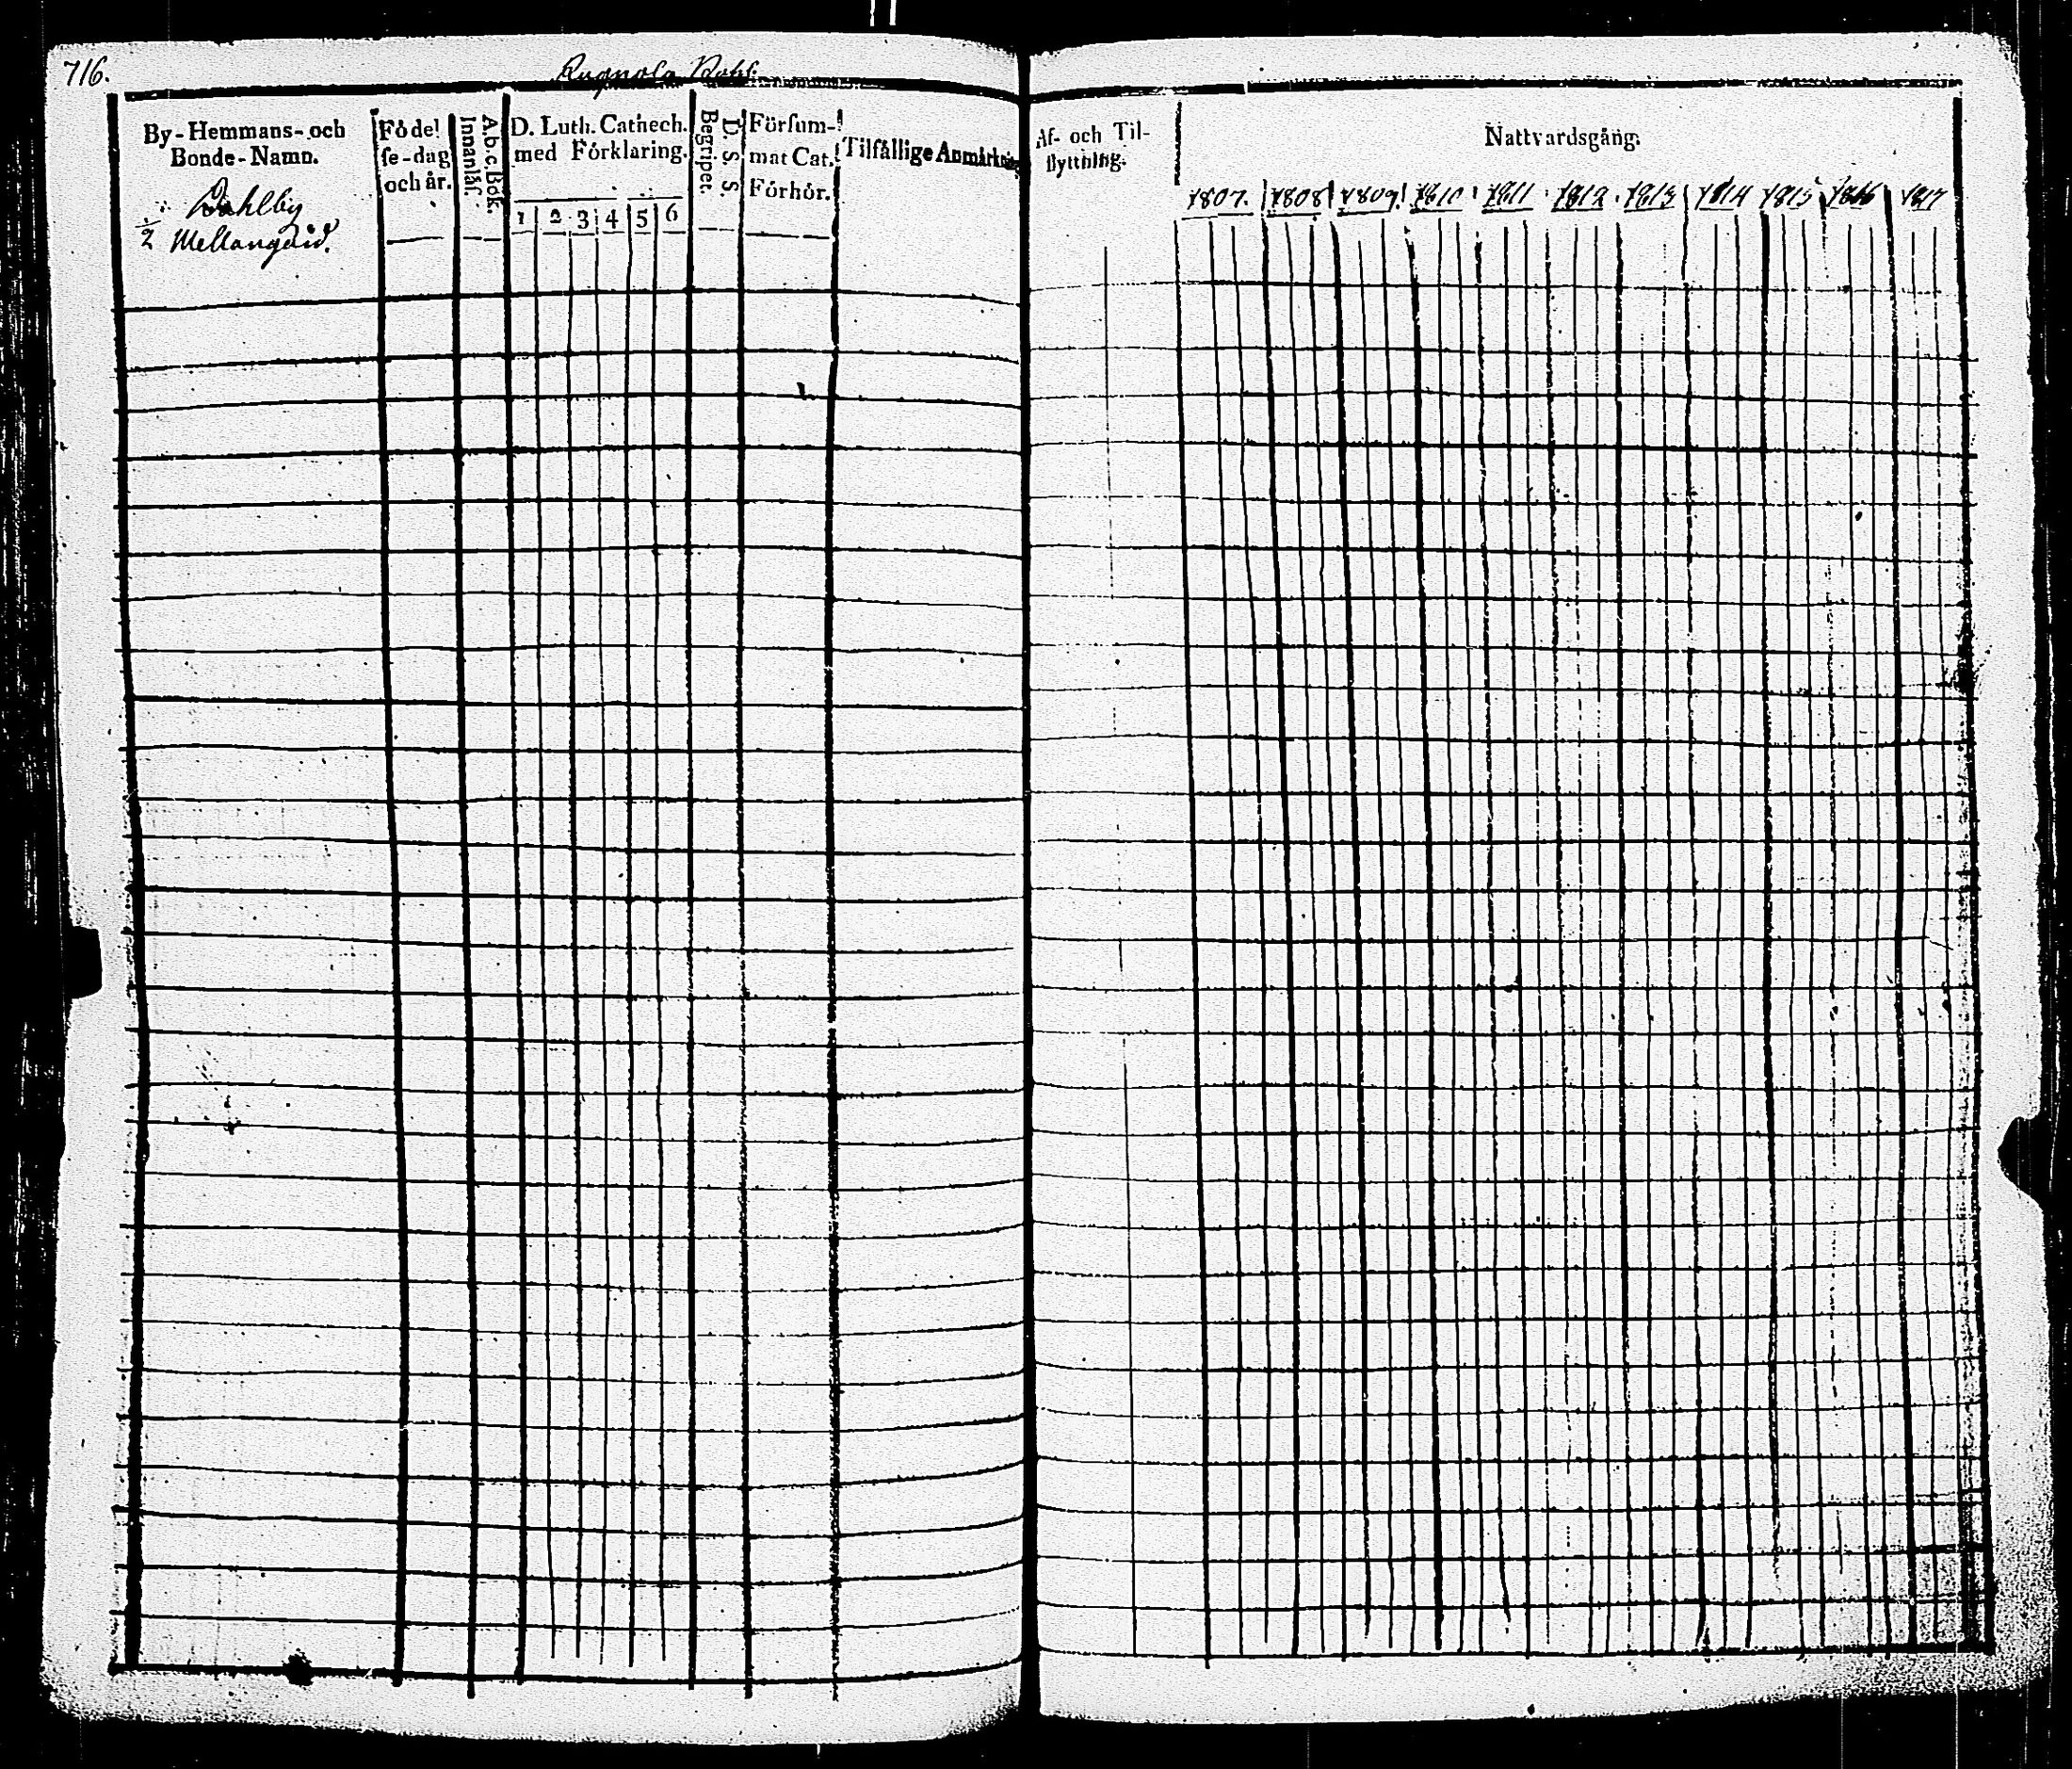 716.
By-Hemmans- och
Bonde-Namn.
Dahlby
1/2 Mellangård.
Födel
se-dag
och år.
A.b.c. Bok.
Innanläs.
D. Luth. Cathech.
med Förklaring.
1 2 3 4 5 6
D. S. S.
Begripet.
Försum-
mat Cat.
Förhör.
Tilfällige Anmärkning
Af- och Til-
flyttning.
Nattvardsgång.
1807. 1808 1809. 1810 1811 1812 1813 1814 1815 1816 1817